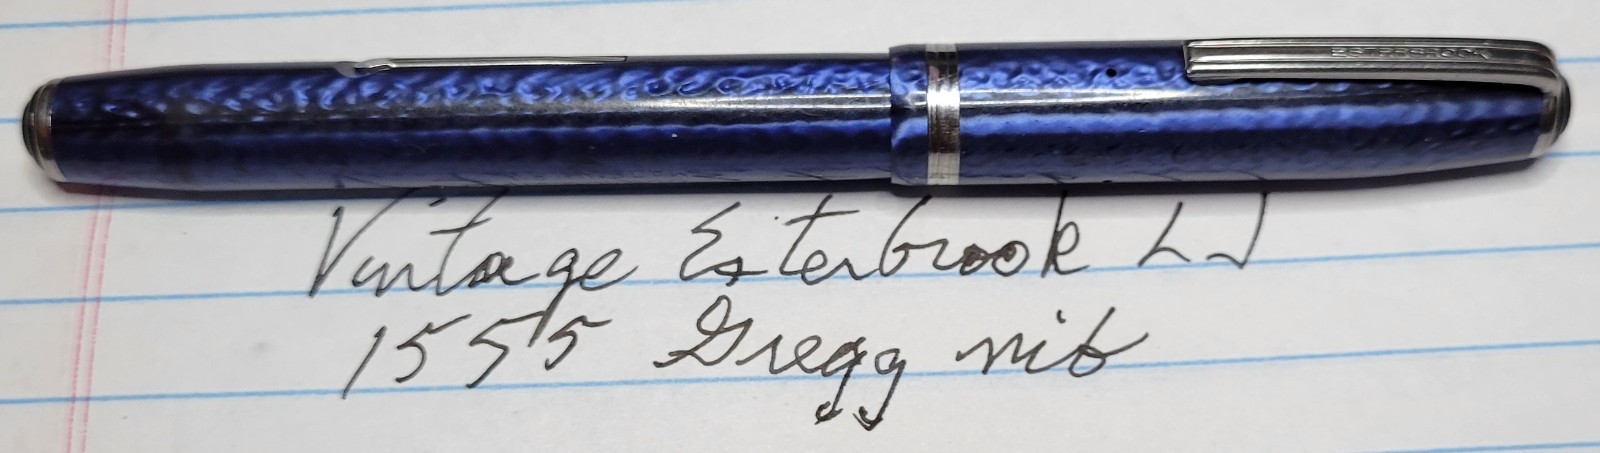 ESTERBROOK
Vintage Esterbrook LJ
1555 Gregg nib